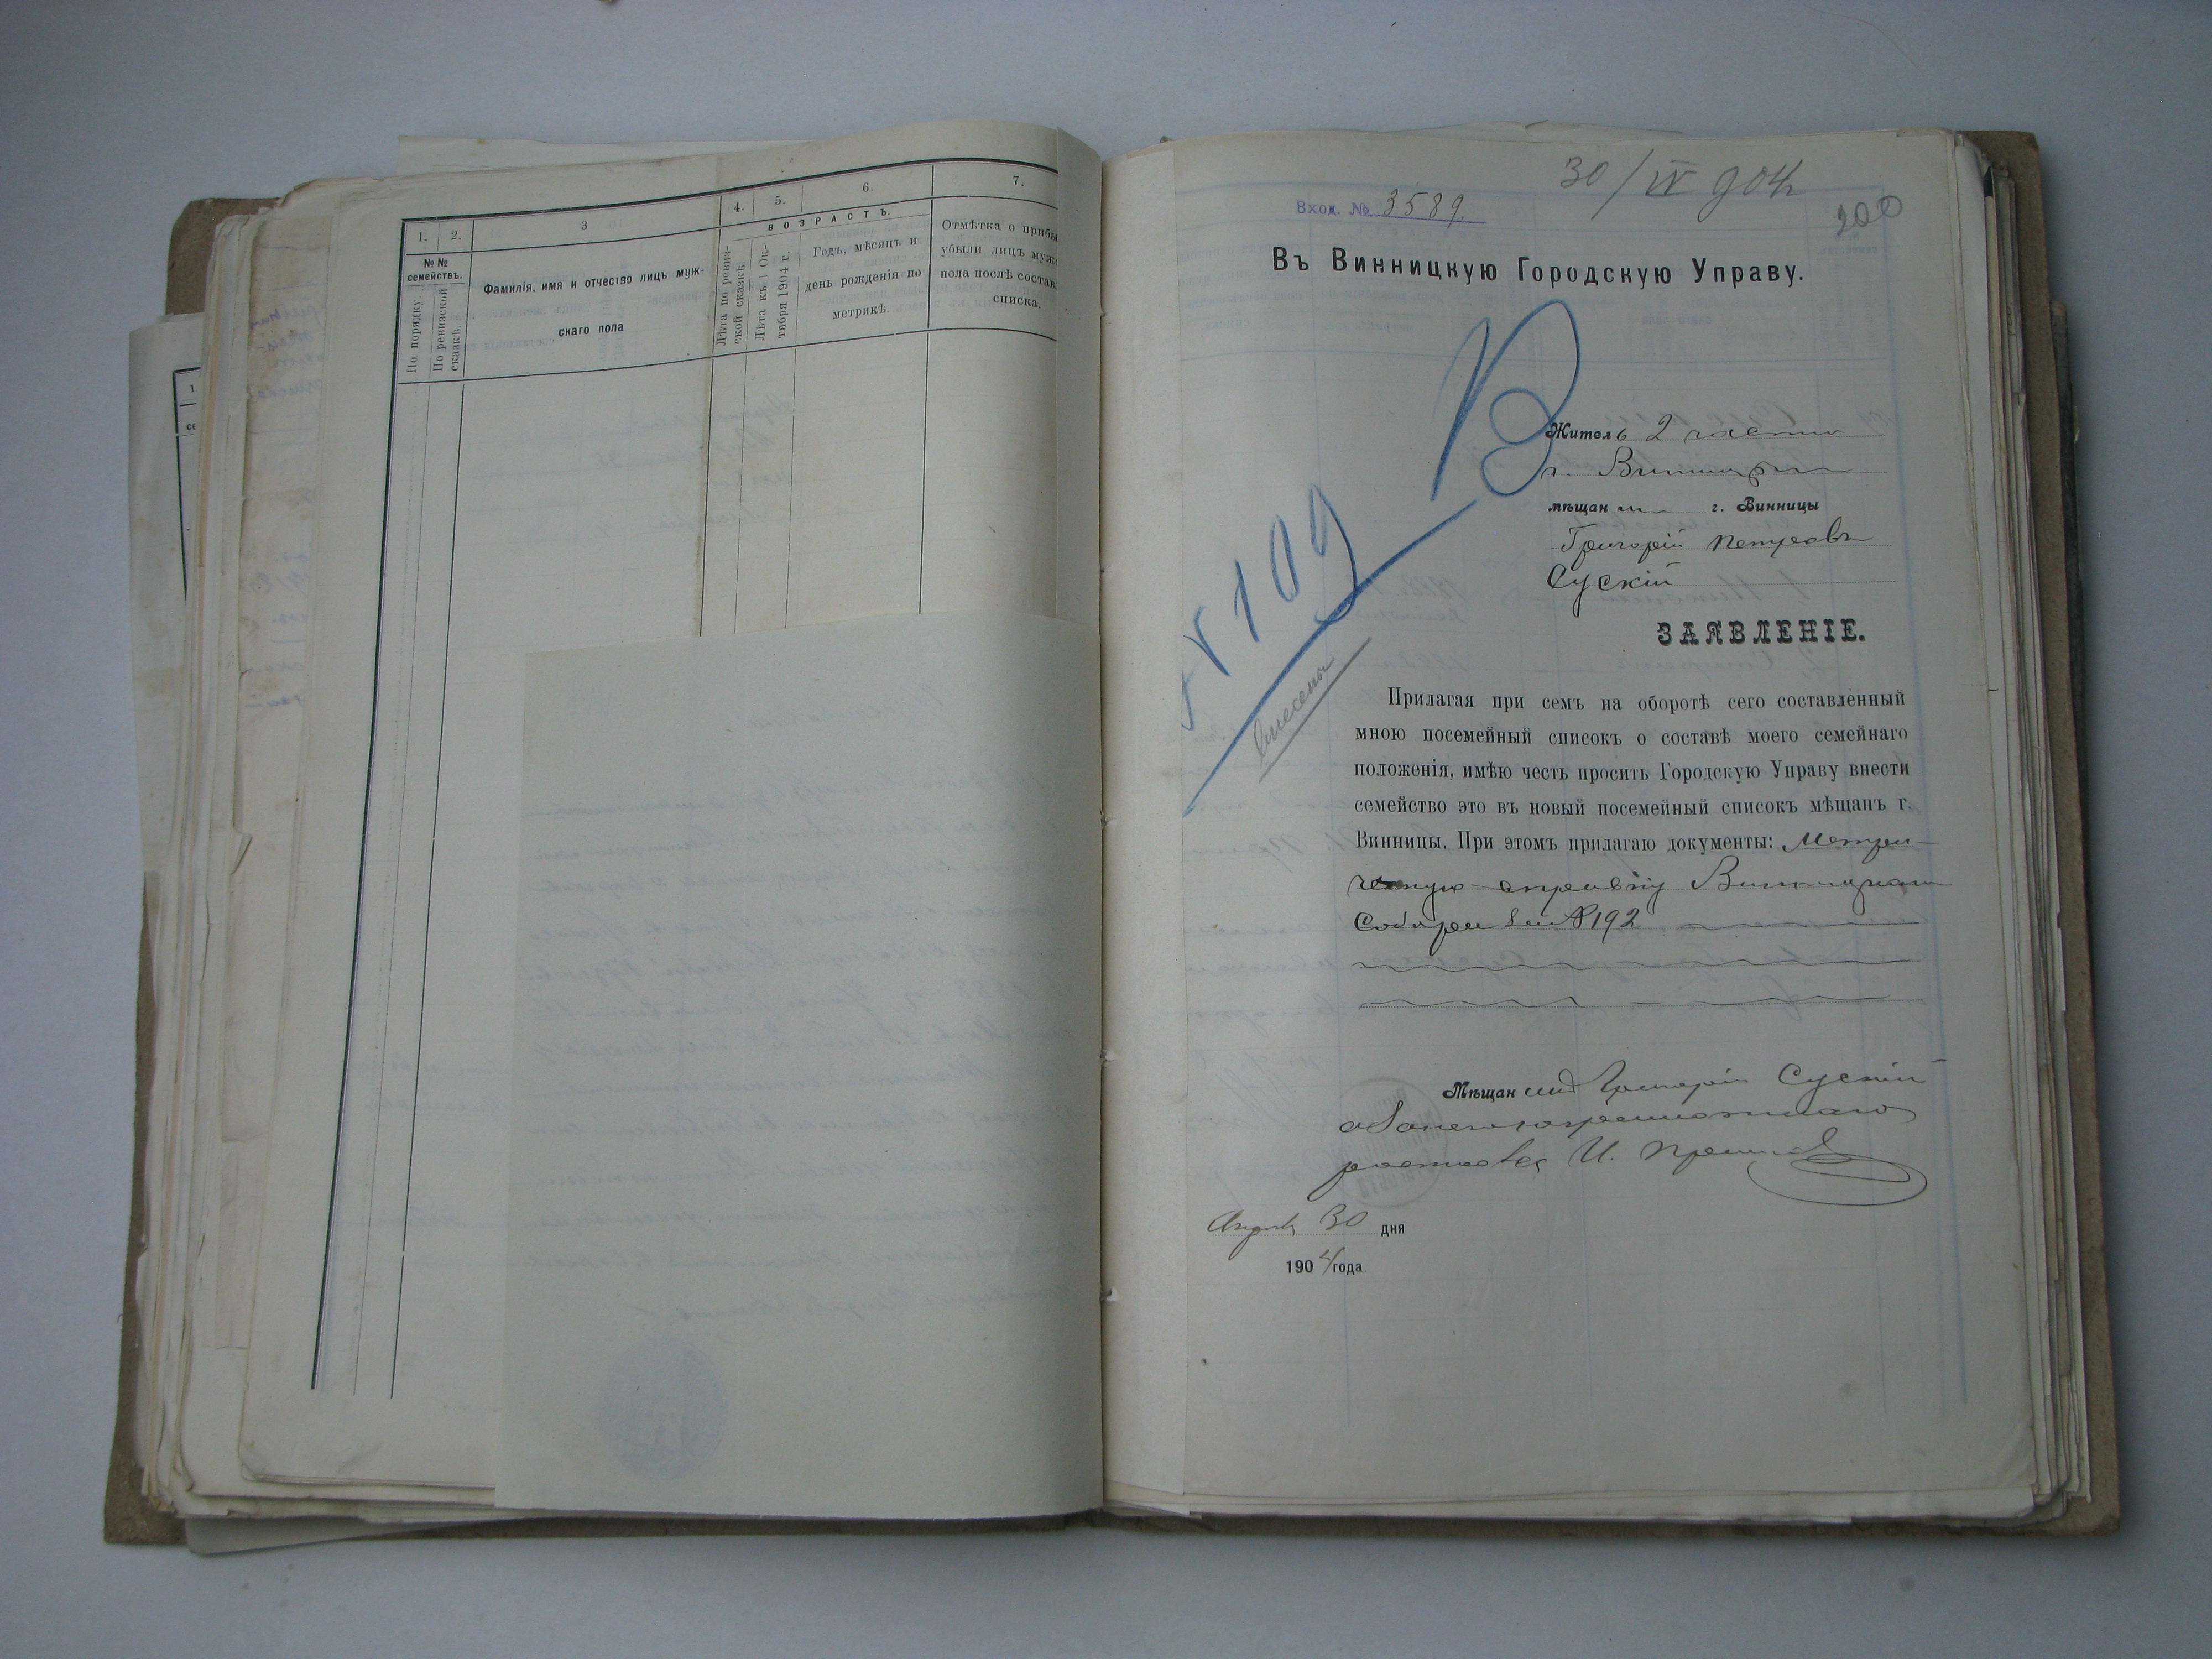 1.
2.
3
4.
5.
6.
7.
№№ семействъ.
По порядку
По ревизской сказкѣ.
Фамилія, имя и отчество лицъ муж-
скаго пола
ВОЗРАСТЪ.
Лѣта по ревиз-
ской сказкѣ.
Лѣта къ 1 Ок-
тября 1904 г.
Годъ, мѣсяцъ и
день рожденія по
метрикѣ.
Отмѣтка о прибы
убыли лицъ муж
пола послѣ состав
списка.
30/IV 904
Вход. № 3589.
200
Въ Винницкую Городскую Управу.
В
№ 109
внесены
Житель 2 части
г. Винницы
мѣщанин г. Винницы
Григорій Петровъ
Сускій
ЗАЯВЛЕНІЕ.
Прилагая при семъ на оборотѣ сего составленный
мною посемейный списокъ о составѣ моего семейнаго
положенія, имѣю честь просить Городскую Управу внести
семейство это въ новый посемейный списокъ мѣщанъ г.
Винницы. При этомъ прилагаю документы: Метри-
ческую справку Винницкаго
Собора за № 192
Мѣщанинъ Григорій Сускій
а за него неграмотнаго
росписался И.
30 дня
1904 года.